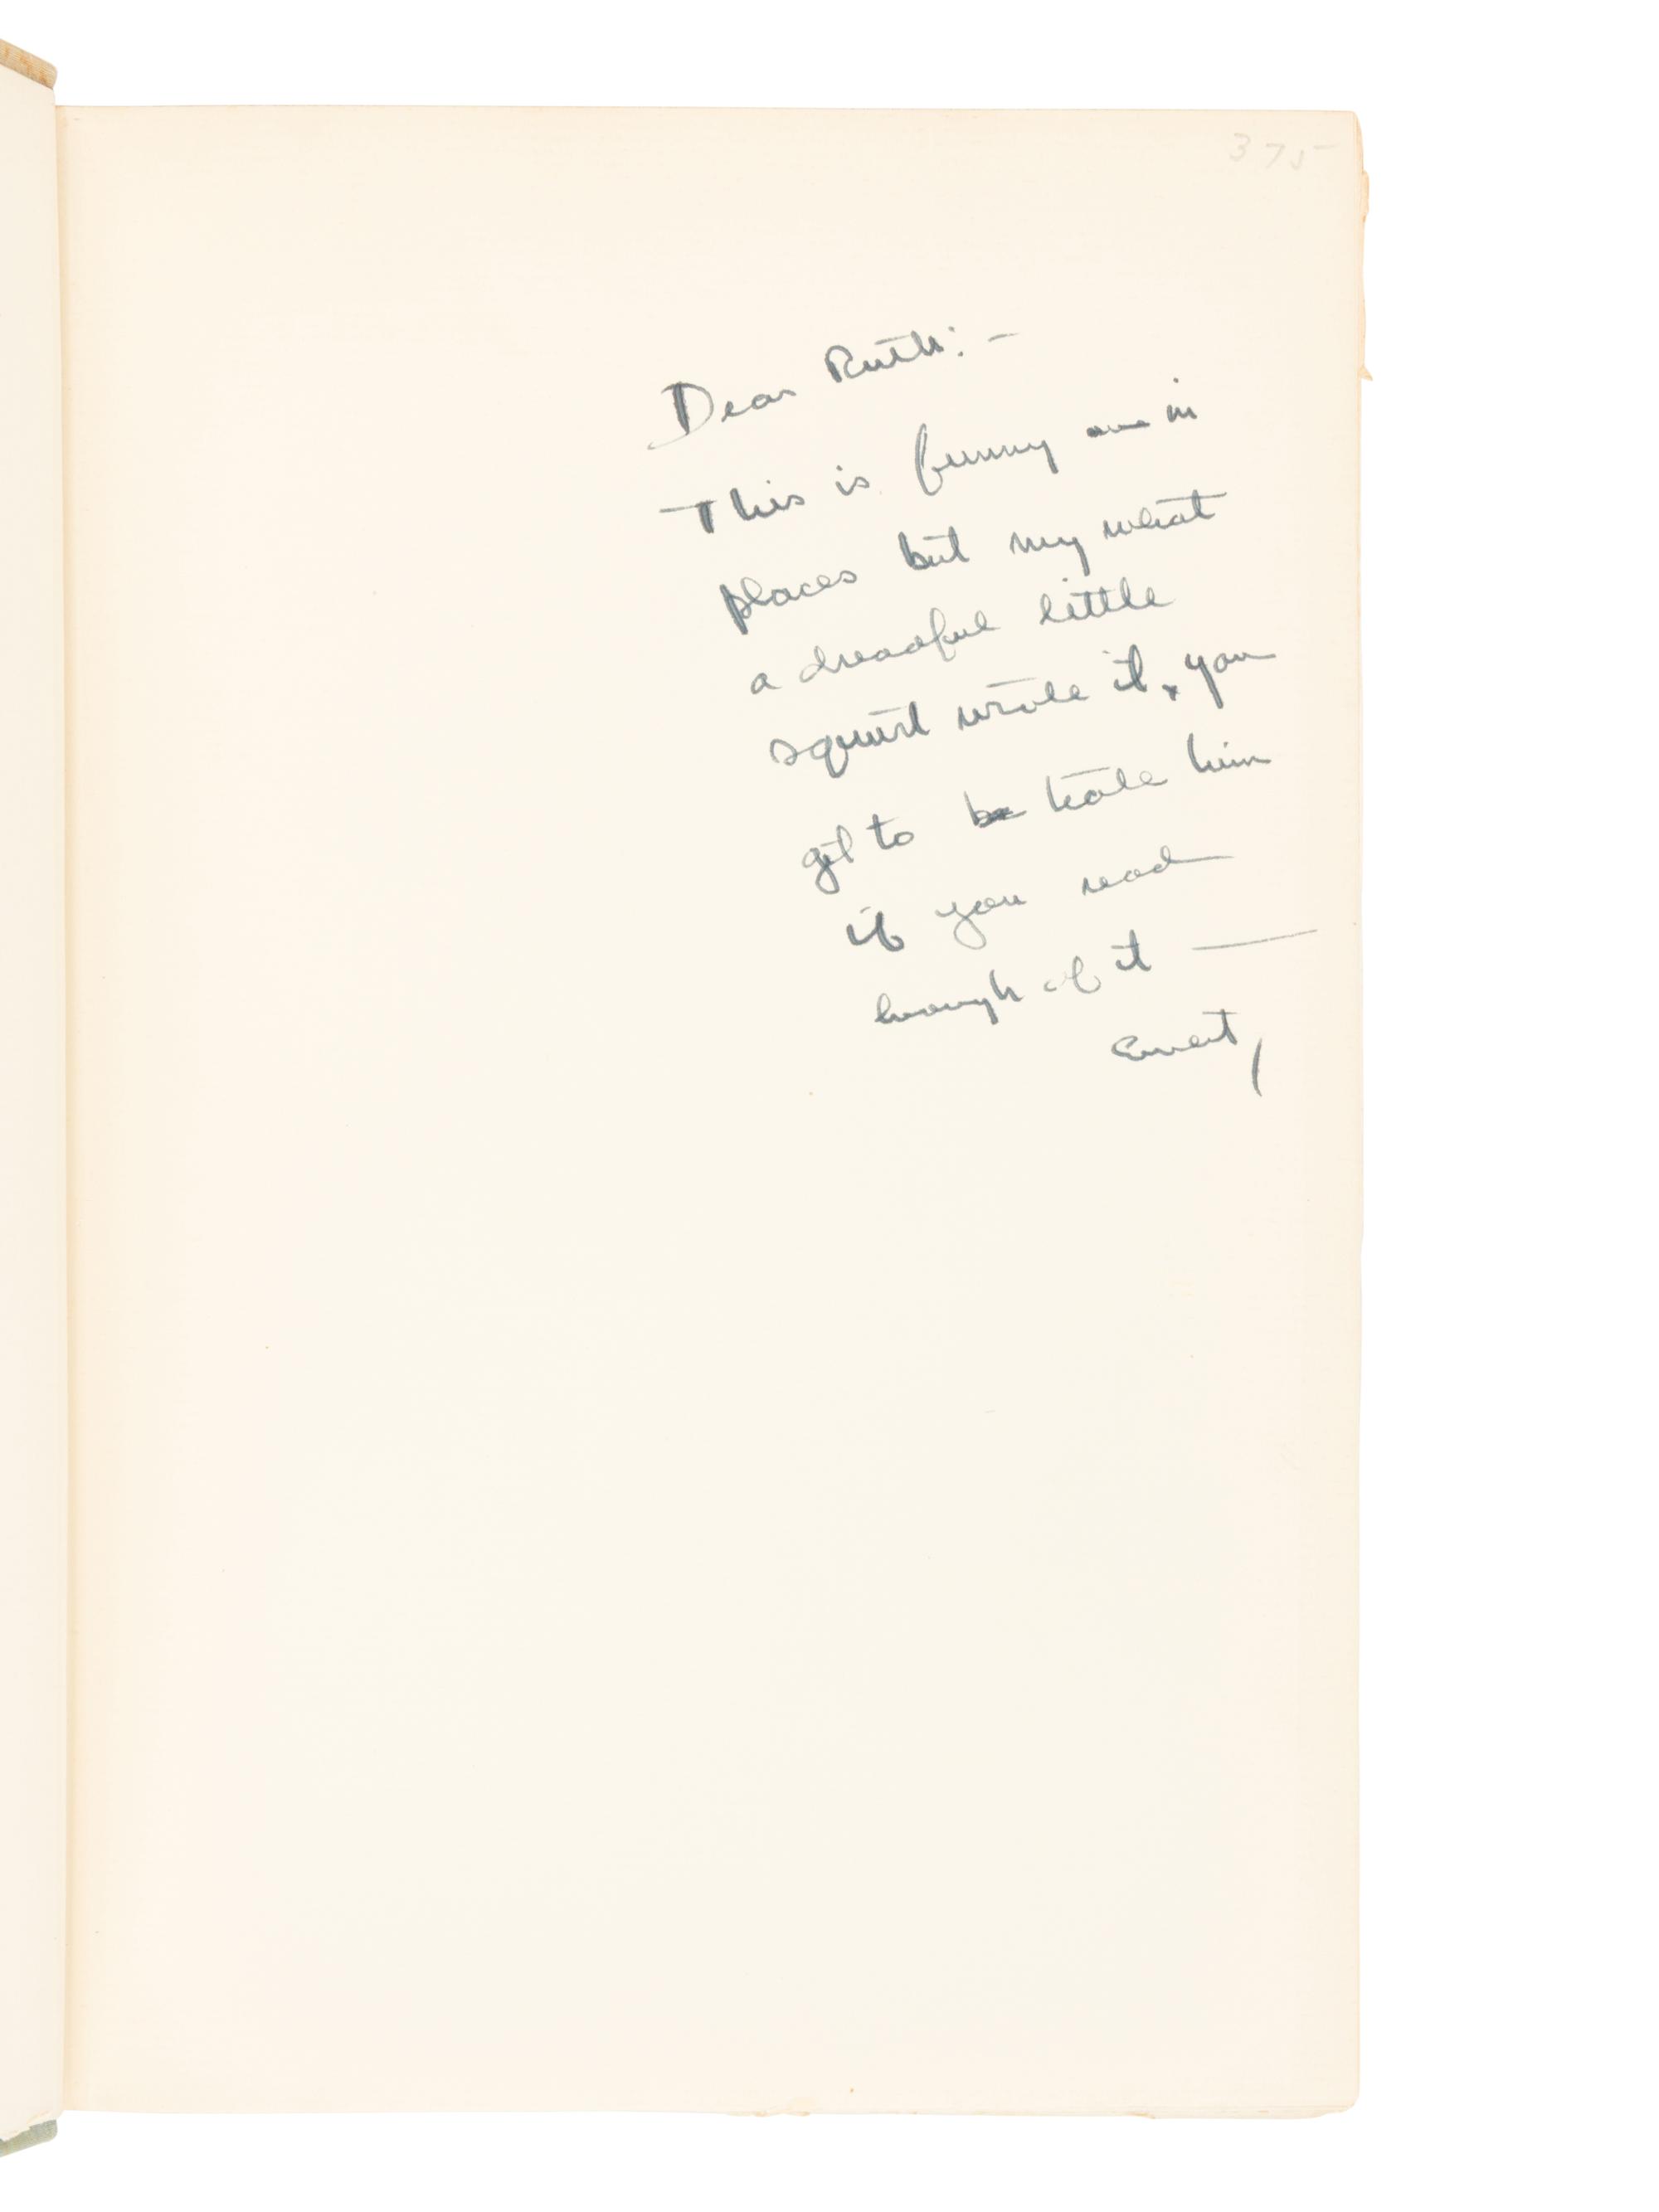 375
Dear Ruth: —
This is funny in
places but my what
a dreadful little
squirt wrote it, you
got to hate him
if you read
enough of it —
Ernest,